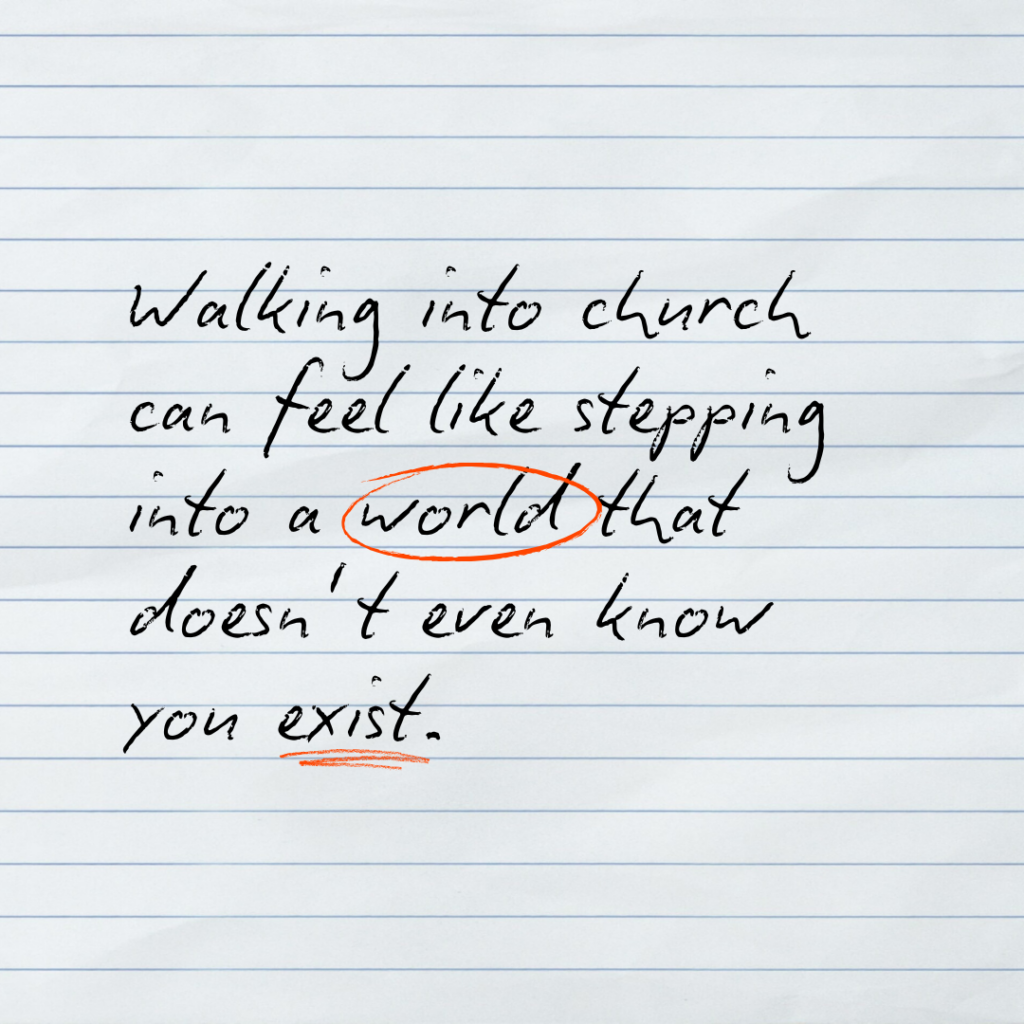 Walking into church
can feel like stepping
into a world that
doesn't even know
you exist.